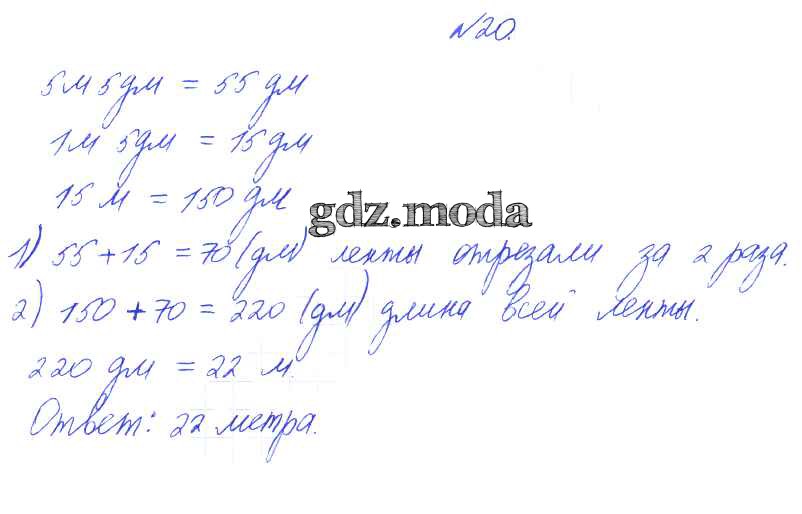 №20.
5м 5дм = 55 дм
1м 5дм = 15 дм
15 м = 150 дм
gdz.moda
1) 55 + 15 = 70 (дм) ленты отрезали за 2 раза.
2) 150 + 70 = 220 (дм) длина всей ленты.
220 дм = 22 м.
Ответ: 22 метра.